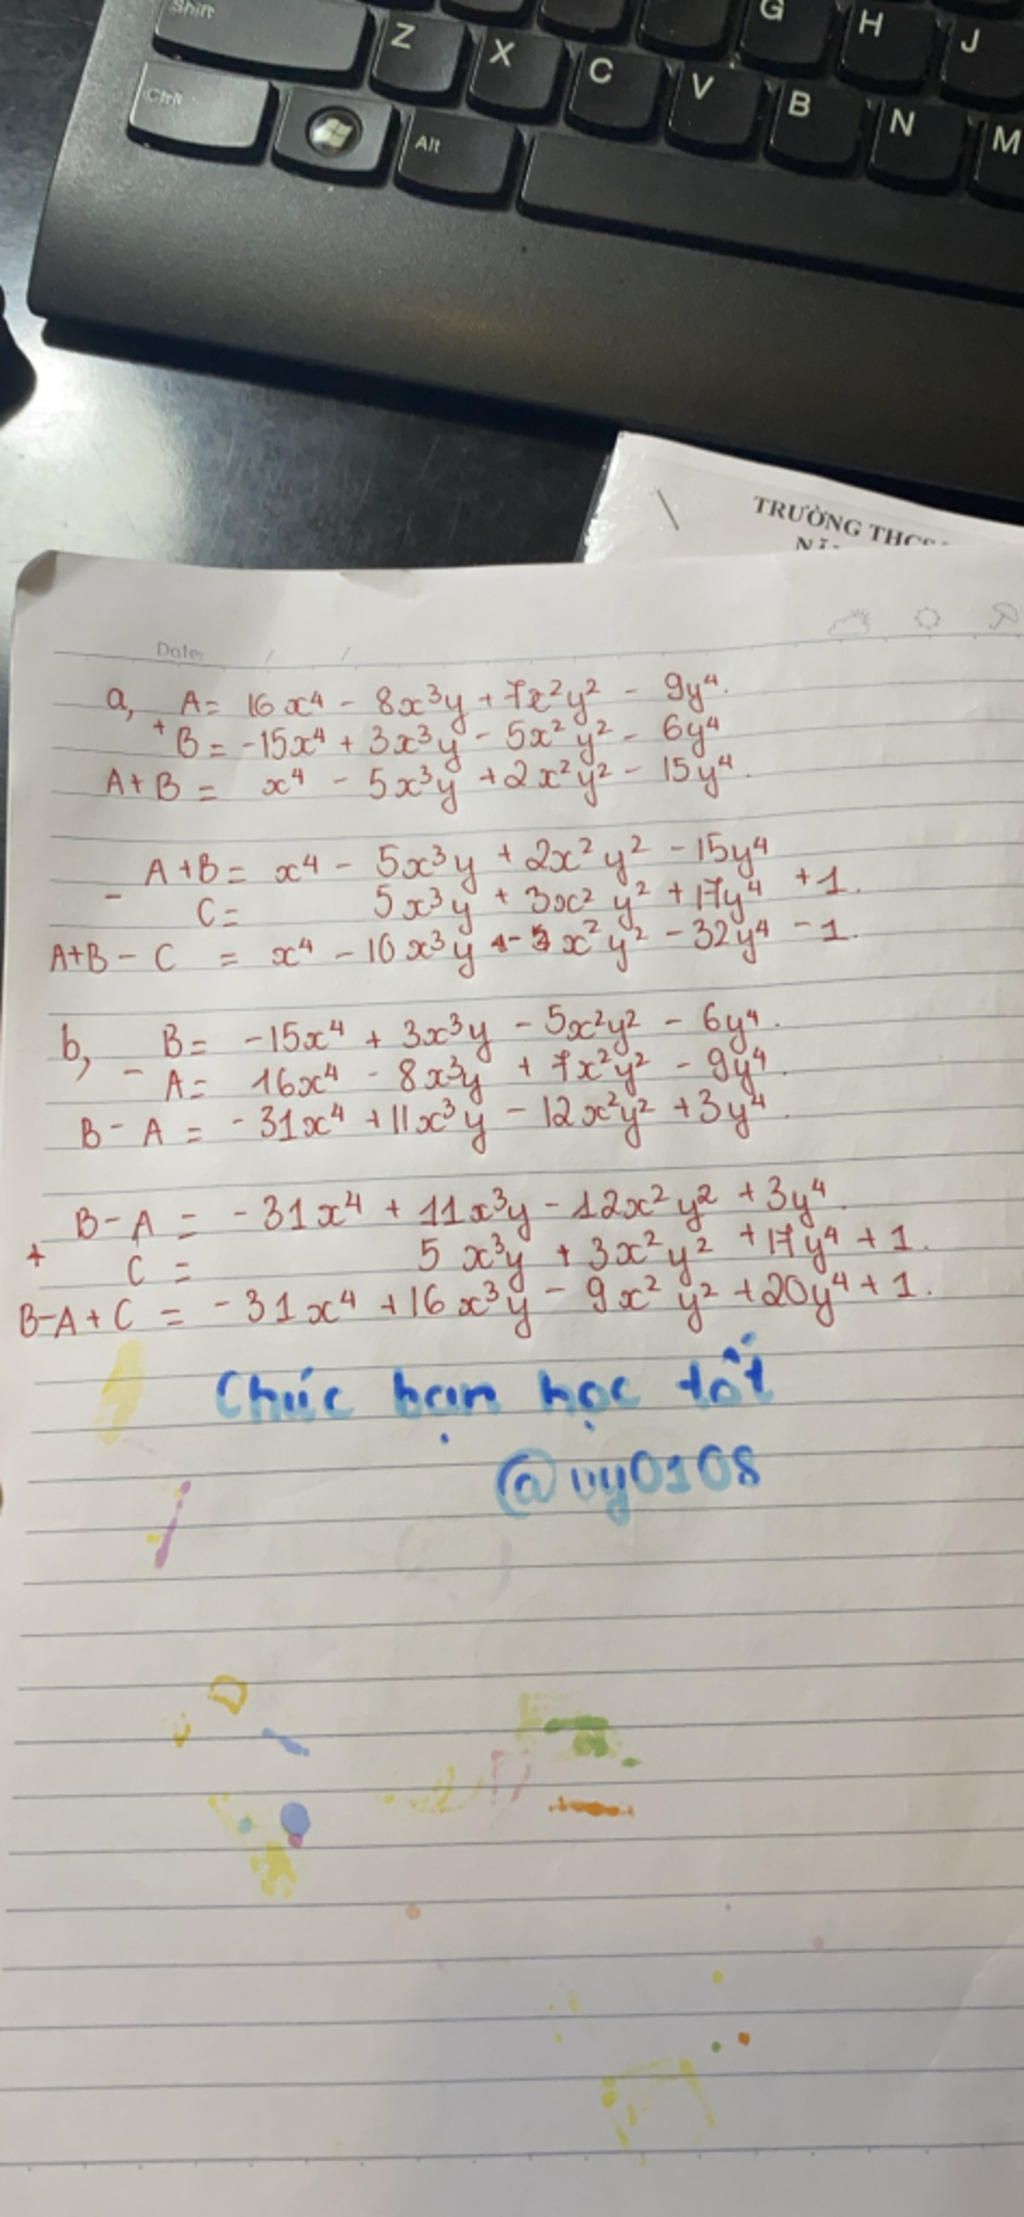 Shift Z X C V B G H N J M
Ctrl Alt
TRƯỜNG THCS
Date: / /
a, A = 16x⁴ - 8x³y + 7x²y² - 9y⁴.
+ B = -15x⁴ + 3x³y - 5x²y² - 6y⁴
A+B = x⁴ - 5x³y + 2x²y² - 15y⁴.
A+B = x⁴ - 5x³y + 2x²y² - 15y⁴
- C = 5x³y + 3x²y² + 17y⁴ + 1.
A+B - C = x⁴ - 10x³y - x²y² - 32y⁴ - 1.
b, B = -15x⁴ + 3x³y - 5x²y² - 6y⁴.
- A = 16x⁴ - 8x³y + 7x²y² - 9y⁴.
B - A = -31x⁴ + 11x³y - 12x²y² + 3y⁴.
B - A = -31x⁴ + 11x³y - 12x²y² + 3y⁴.
+ C = 5x³y + 3x²y² + 17y⁴ + 1.
B-A + C = -31x⁴ + 16x³y - 9x²y² + 20y⁴ + 1.
Chúc bạn học tốt
@vy0108